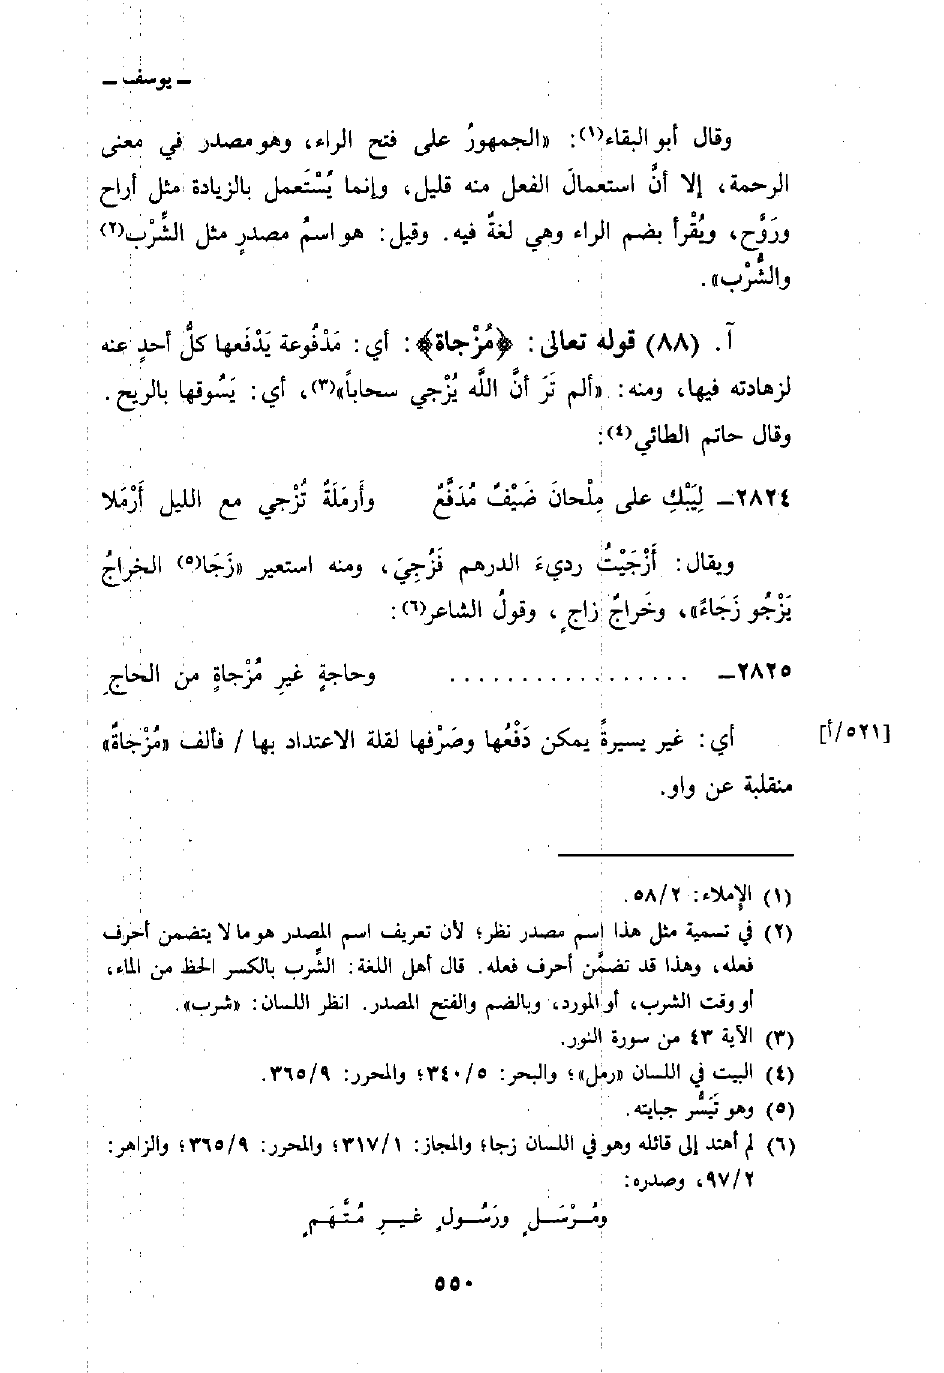 ــ يوسف ــ
وقال أبو البقاء(١): «الجمهورُ على فتح الراء، وهو مصدر في معنى
الرحمة، إلا أنَّ استعمالَ الفعل منه قليل، وإنما يُسْتَعمل بالزيادة مثل أراح
ورَوَّح، ويُقْرأ بضم الراء وهي لغةٌ فيه. وقيل: هو اسمُ مصدرٍ مثل الشِّرْب(٢)
والشُّرْب».
آ. (٨٨) قوله تعالى: ﴿مُزْجاة﴾: أي: مَدْفُوعة يَدْفَعها كلُّ أحدٍ عنه
لزهادته فيها، ومنه: «ألم تَرَ أنَّ الله يُزْجي سحاباً»(٣)، أي: يَسُوقها بالريح.
وقال حاتم الطائي(٤):
٢٨٢٤ــ لِيَبْكِ على مِلْحانَ ضَيْفٌ مُدَفَّعٌ وأَرمَلَةٌ تُزْجي مع الليل أَرْمَلا
ويقال: أَزْجَيْتُ رديءَ الدرهم فَزُجِيَ، ومنه استعير «زَجَا(٥) الخراجُ
يَزْجُو زَجَاءً»، وخَراجٌ زاجٍ، وقولُ الشاعر(٦):
٢٨٢٥ــ . . . . . . . . . . . . . . . . . وحاجةٍ غيرِ مُزْجاةٍ من الحاجِ
أي: غير يسيرةً يمكن دَفْعُها وصَرْفها لقلة الاعتداد بها / فألف «مُزْجاةٌ» [٥٢١/أ]
منقلبة عن واو.
(١) الإملاء: ٥٨/٢.
(٢) في تسمية مثل هذا إسم مصدر نظر؛ لأن تعريف اسم المصدر هو ما لا يتضمن أحرف
فعله، وهذا قد تضمَّن أحرف فعله. قال أهل اللغة: الشِّرب بالكسر الحظ من الماء،
أو وقت الشرب، أو المورد، وبالضم والفتح المصدر. انظر اللسان: «شرب».
(٣) الآية ٤٣ من سورة النور.
(٤) البيت في اللسان «رمل»؛ والبحر: ٣٤٠/٥؛ والمحرر: ٣٦٥/٩.
(٥) وهو تَيَسُّر جبايته.
(٦) لم أهتد إلى قائله وهو في اللسان زجا؛ والمجاز: ٣١٧/١؛ والمحرر: ٣٦٥/٩؛ والزاهر:
٩٧/٢، وصدره:
ومُـرْسَـلٍ ورَسُـولٍ غـيـرِ مُـتَّـهَـمٍ
٥٥٠